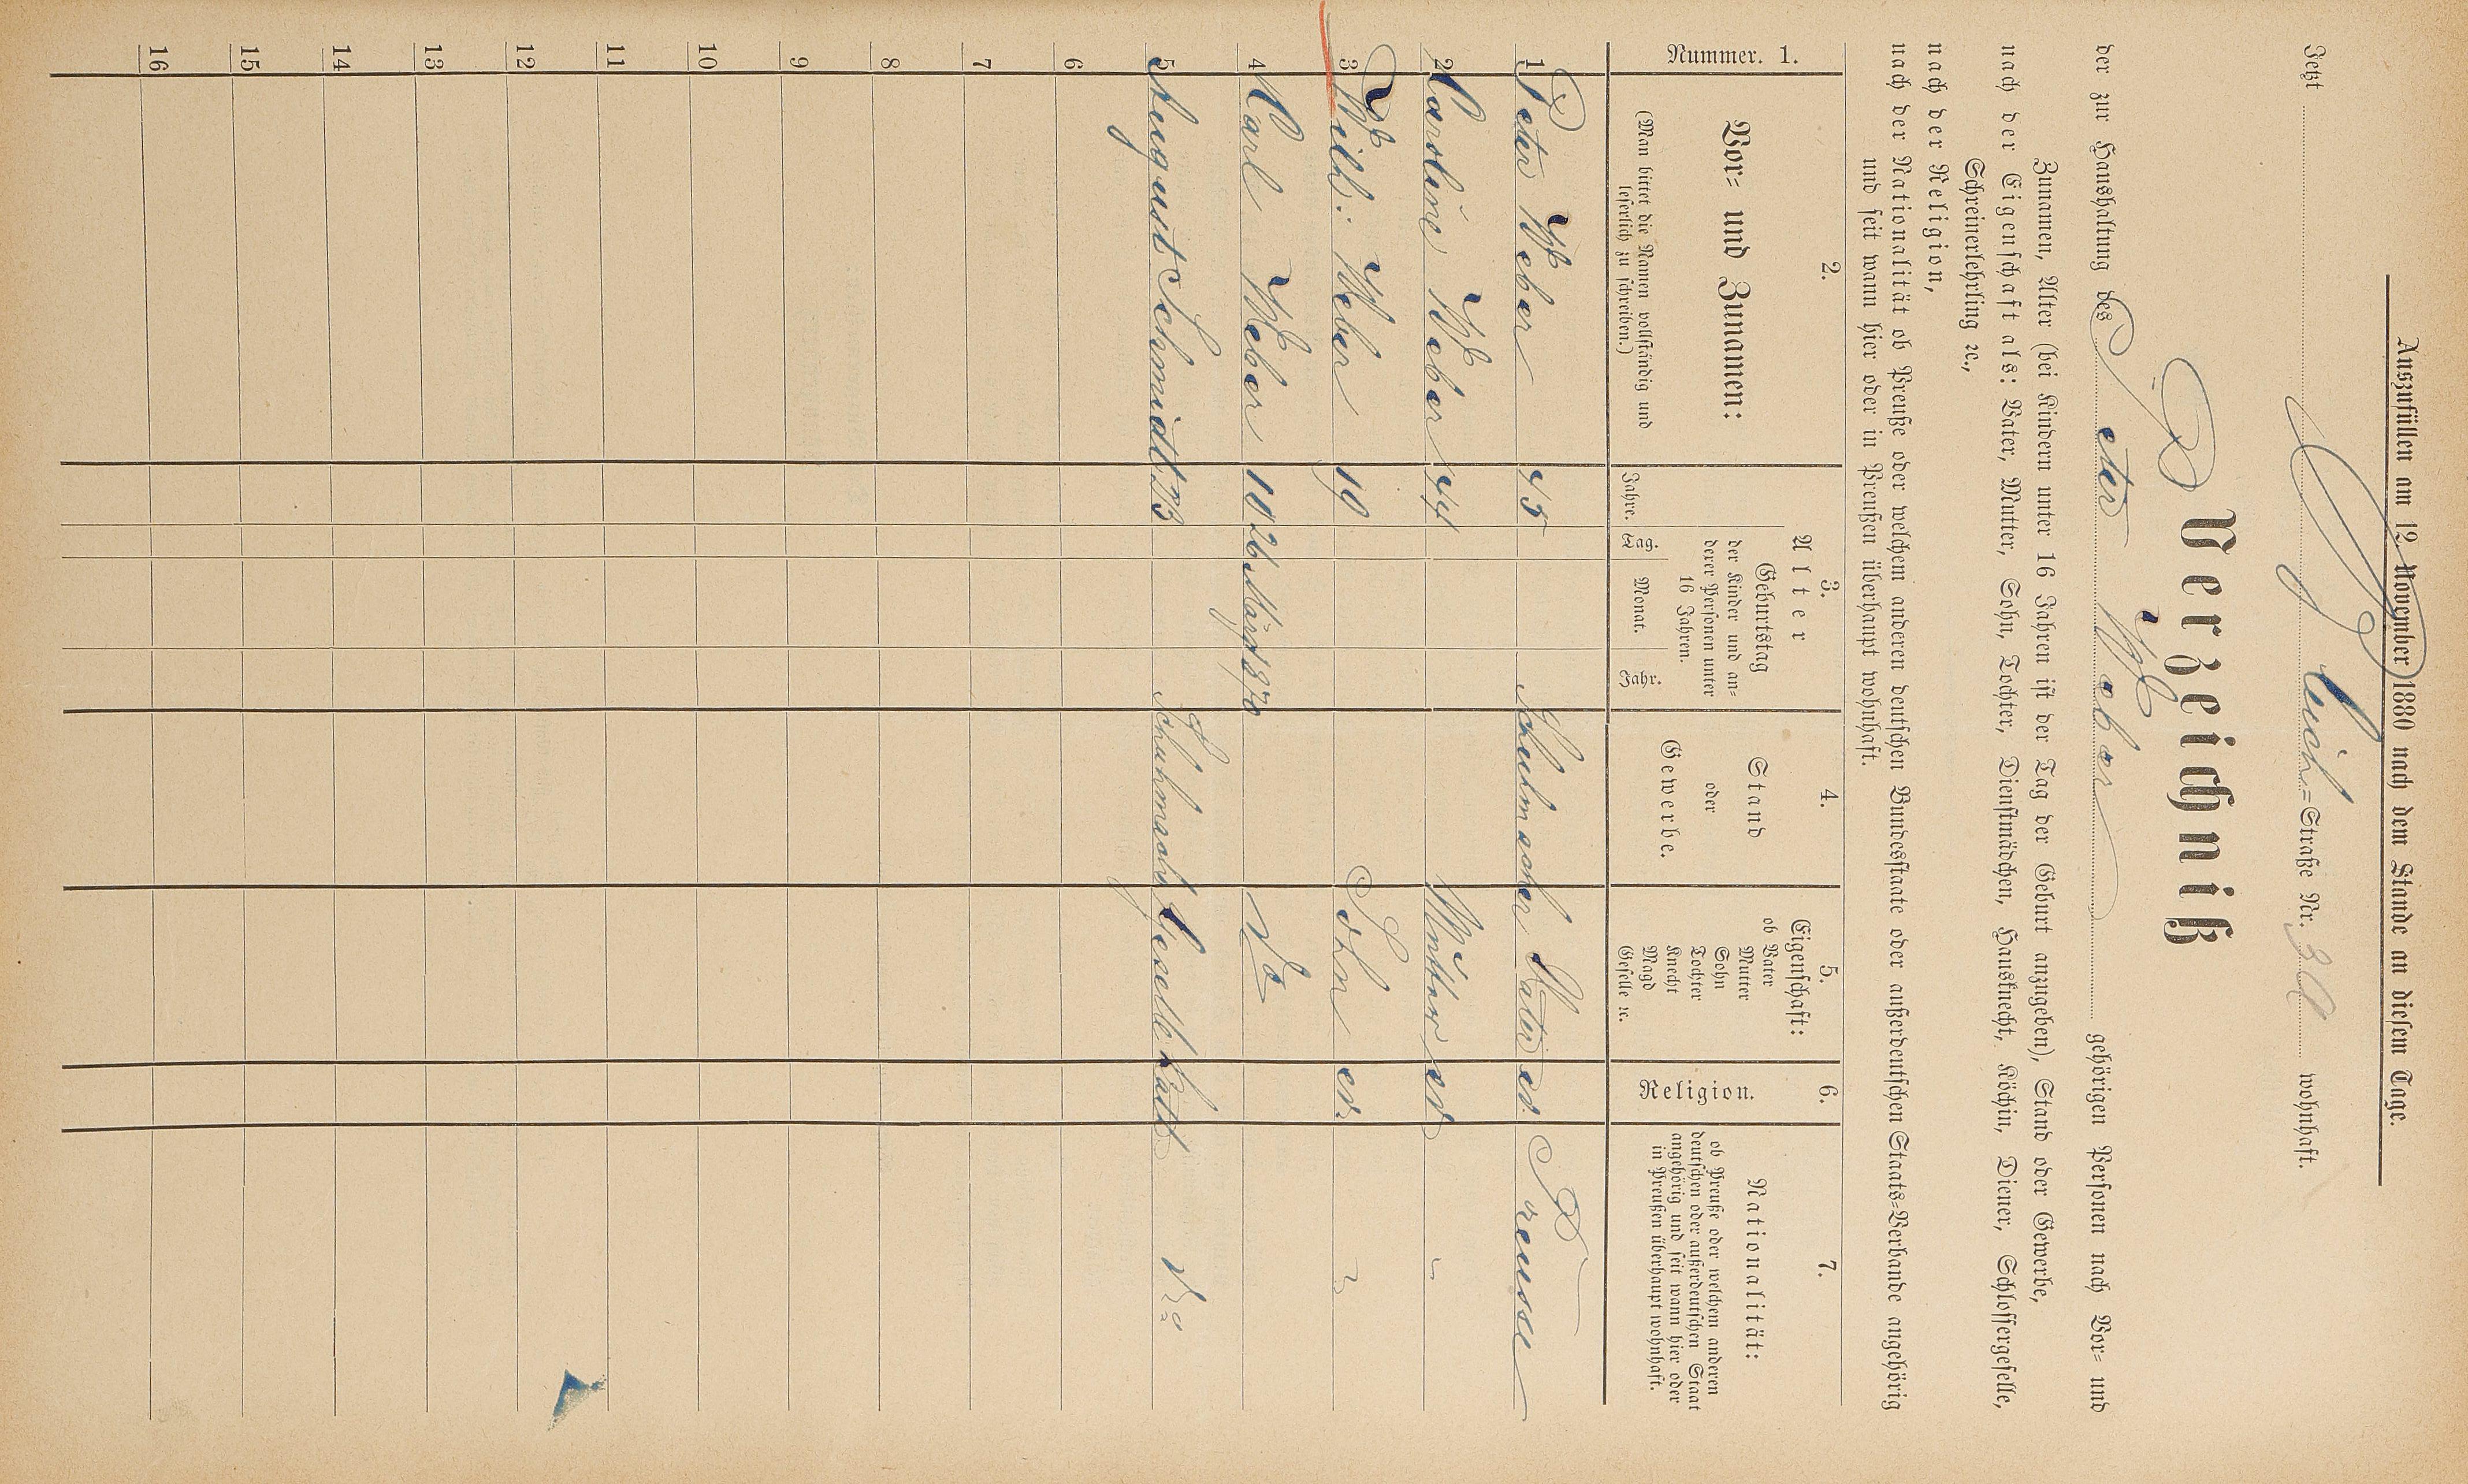 Auszufüllen am 12 November 1880 nach dem Stande an diesem Tage.
Jetzt =Straße Nr. wohnhaft.
Verzeichniß
der zur Haushaltung des Peter Weber gehörigen Personen nach Vor= und
Zunamen, Alter (bei Kindern unter 16 Jahren ist der Tag der Geburt anzugeben), Stand oder Gewerbe,
nach der Eigenschaft als: Vater, Mutter, Sohn, Tochter, Dienstmädchen, Hausknecht, Köchin, Diener, Schlossergeselle,
Schreinerlehrling ꝛc.,
nach der Religion,
nach der Nationalität ob Preuße oder welchem anderen deutschen Bundesstaate oder außerdeutschen Staats=Verbande angehörig
und seit wann hier oder in Preußen überhaupt wohnhaft.
Nummer. 1.
2.
Vor= und Zunamen:
(Man bittet die Namen vollständig und
leserlich zu schreiben.)
3.
Alter
Jahre.
Geburtstag
der Kinder und an=
derer Personen unter
16 Jahren.
Tag. Monat. Jahr.
4.
Stand
oder
Gewerbe.
5.
Eigenschaft:
ob Vater
Mutter
Sohn
Tochter
Knecht
Magd
Geselle ꝛc.
6.
Religion.
7.
Nationalität:
ob Preuße oder welchem anderen
deutschen oder außerdeutschen Staat
angehörig und seit wann hier oder
in Preußen überhaupt wohnhaft.
1 Peter Weber 45 Schuhmacher Vater ev. Preusse
2 Caroline Weber 44 Mutter ev "
3 Wilh: Weber 19 Sohn ev. "
4 Karl Weber 10 26 März 1870 do
5 August Schmidt 23 Schuhmach Geselle Kath do
6
7
8
9
10
11
12
13
14
15
16